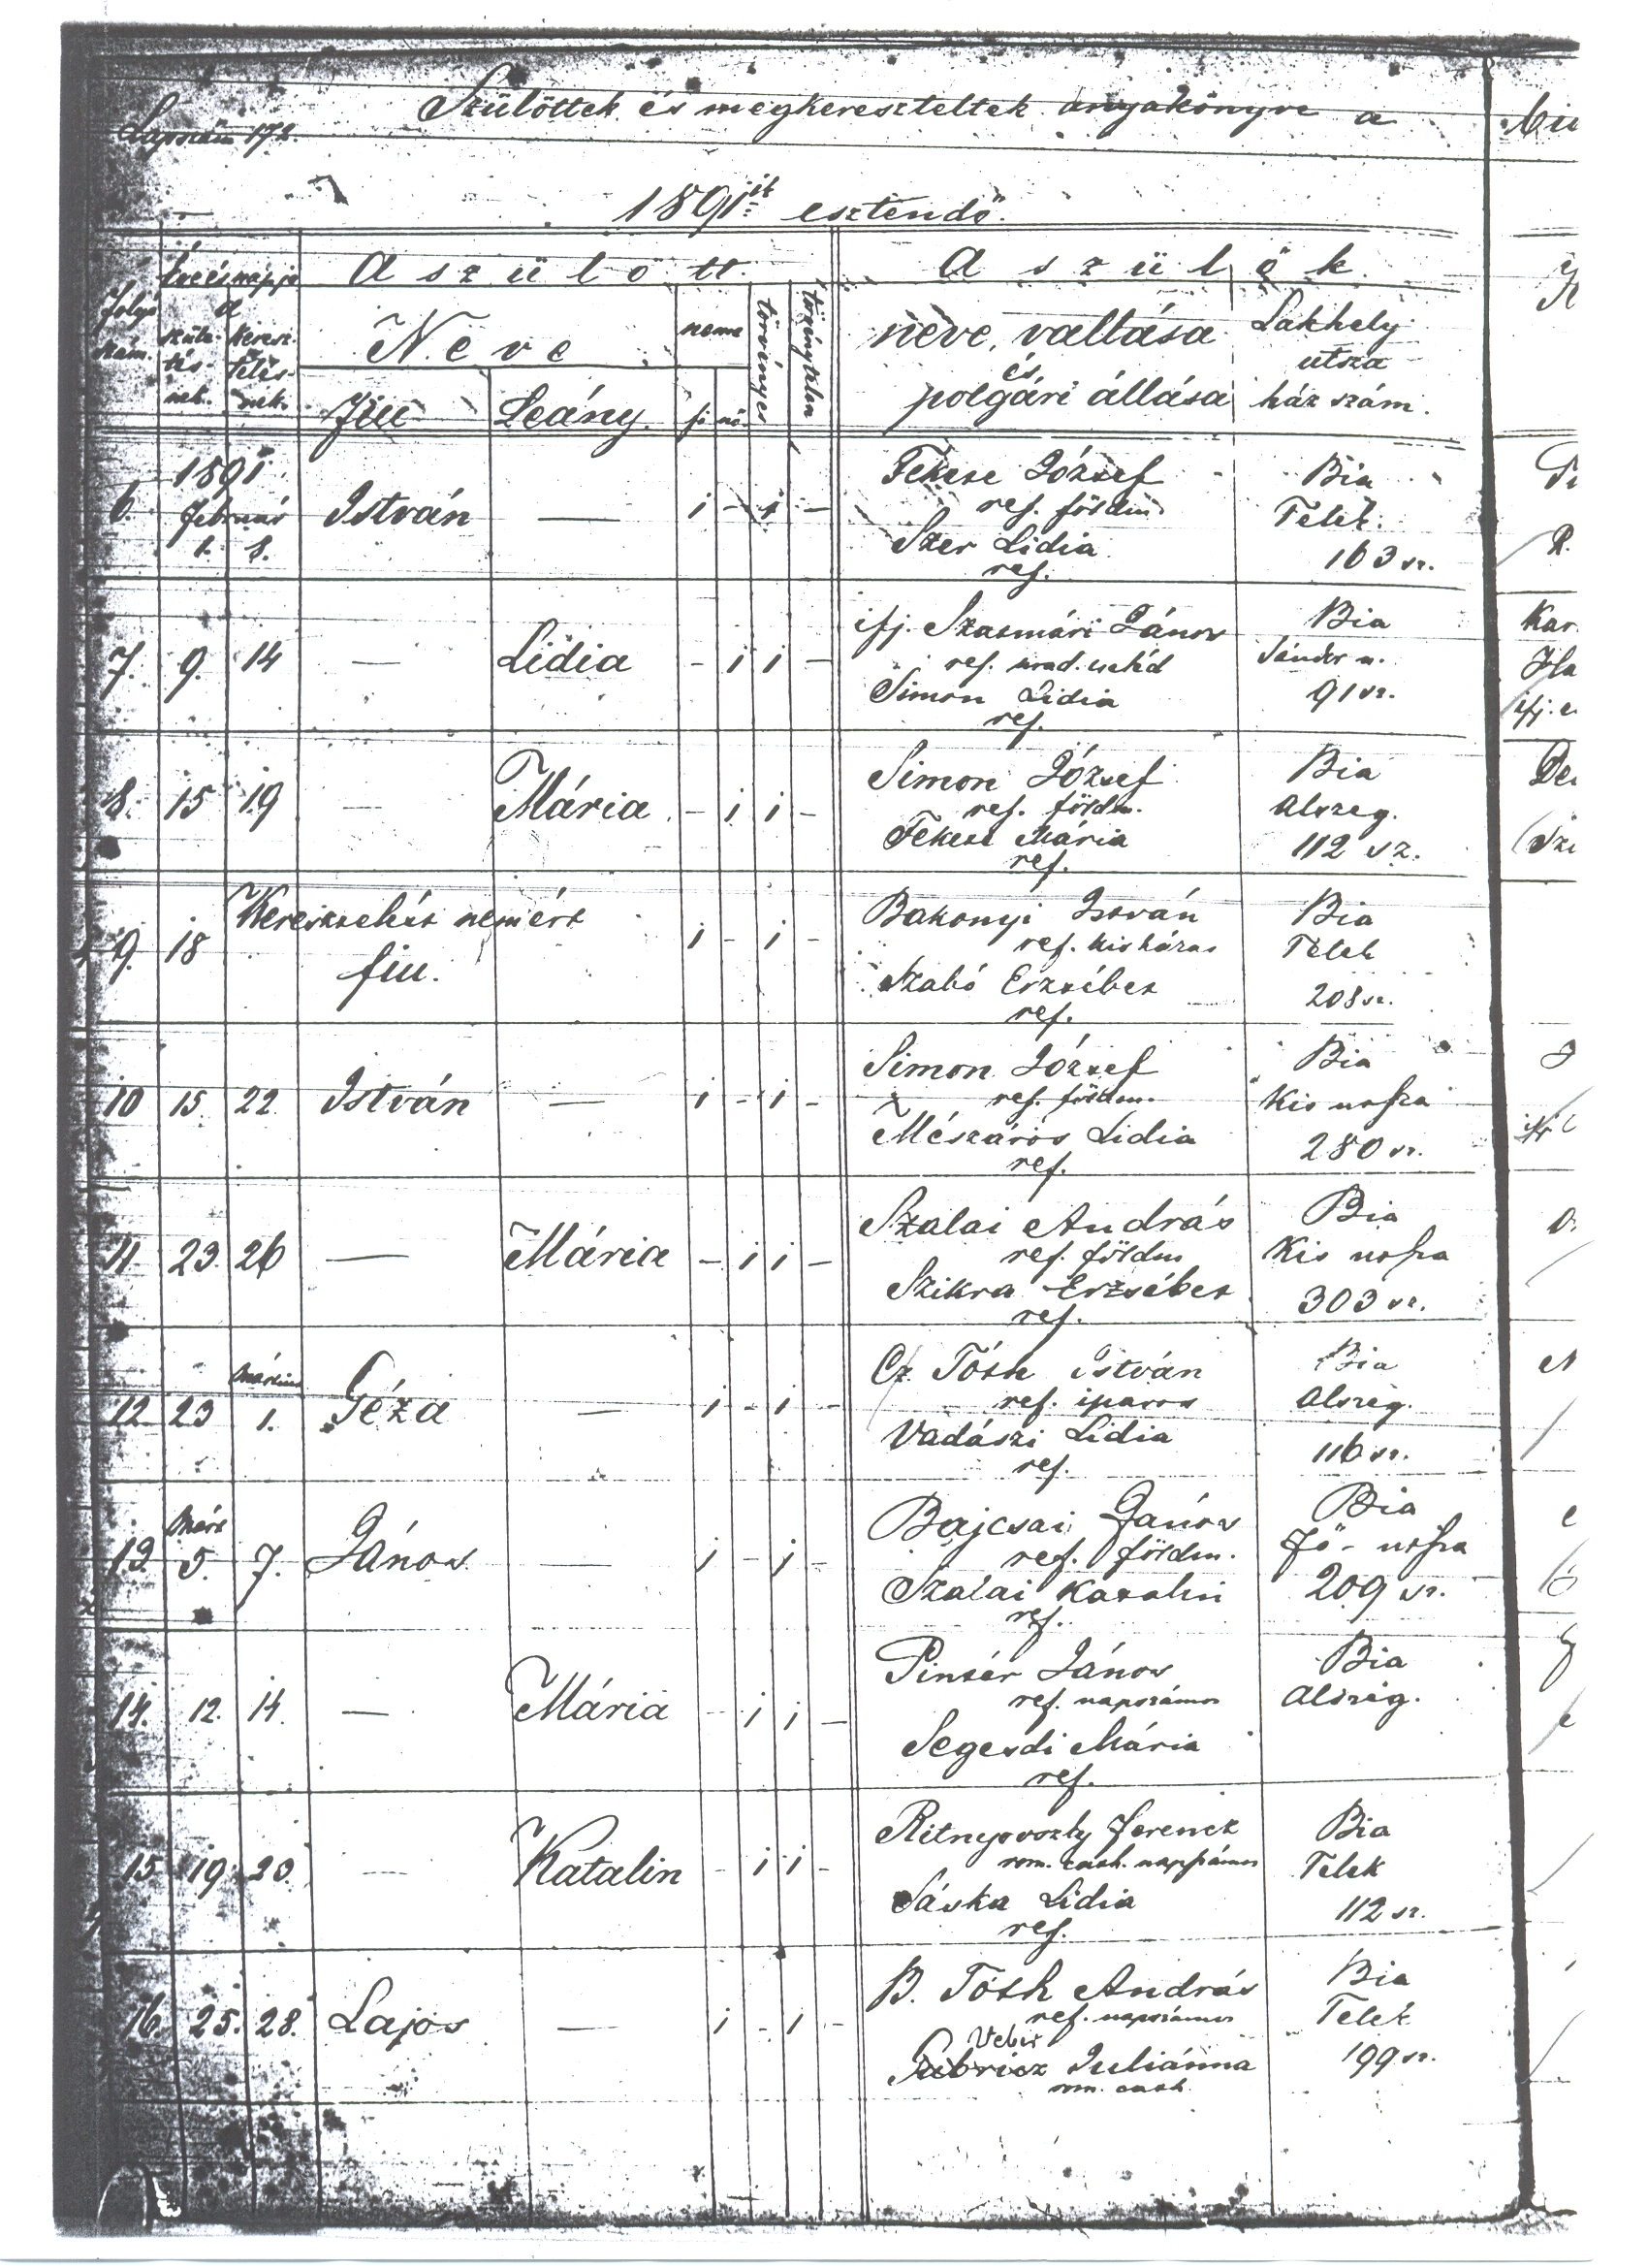 Szülöttek és megkereszteltek anyakönyve a
Lapszám 172.
1891ik esztendő.
A szülött
A szülők
Folyó szám.
éve és napja a
szüle-
tés-
nek.
kereszt-
telés-
nek.
Neve
Fiu Leány.
neme
fi nő
törvényes
törvénytelen
neve, vallása
és
polgári állása
Lakhely
utsza
ház szám.
1891
Február
6. 1. 8. István — 1 - 1 -
Fekese József
ref. földm.
Szer Lidia
ref.
Bia
Telek
163 sz.
7. 9. 14 — Lidia - 1 1 -
ifj. Szasmári János
ref. urad. cseléd
Simon Lidia
ref.
Bia
Sándor u.
91 sz.
8. 15 19 — Mária - 1 1 -
Simon József
ref. földm.
Fekese Mária
ref.
Bia
Alszeg.
112 sz.
9. 18 Keresztelést nem ért
fiu. 1 - 1 -
Bakonyi István
ref. kisházas
Szabó Erzsébet
ref.
Bia
Telek
208 sz.
10 15. 22. István — 1 - 1 -
Simon József
ref. földm.
Mészáros Lidia
ref.
Bia
Kis utsza
280 sz.
11. 23. 26 — Mária - 1 1 -
Szalai András
ref. földm
Szikra Erzsébet
ref.
Bia
Kis utsza
303 sz.
Március
12 23 1. Géza — 1 - 1 -
Cz. Tóth István
ref. iparos
Vadászi Lidia
ref.
Bia
Alszeg.
116 sz.
Márt
13. 5. 7. János — 1 - 1 -
Bajcsai János
ref. földm.
Szalai Katalin
ref.
Bia
Fő-utsza
209 sz.
14. 12. 14. — Mária - 1 1 -
Pintér János
ref. napszámos
Segesdi Mária
ref.
Bia
Alszeg.
15 19. 20. — Katalin - 1 1 -
Ritnyovszky Ferencz
rom. cath. napszámos
Sáska Lidia
ref.
Bia
Telek
112 sz.
16. 25. 28. Lajos — 1 - 1 -
B. Tóth András
ref. napszámos
Veber
Juliánna
rom. cath.
Bia
Telek
199 sz.